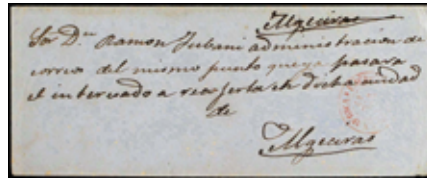 Algeciras
Sor Dn Ramon Jubani administracion de
correos del mismo punto que ya pasara
el interesado a recojerla en dicha ciudad
de
Algeciras